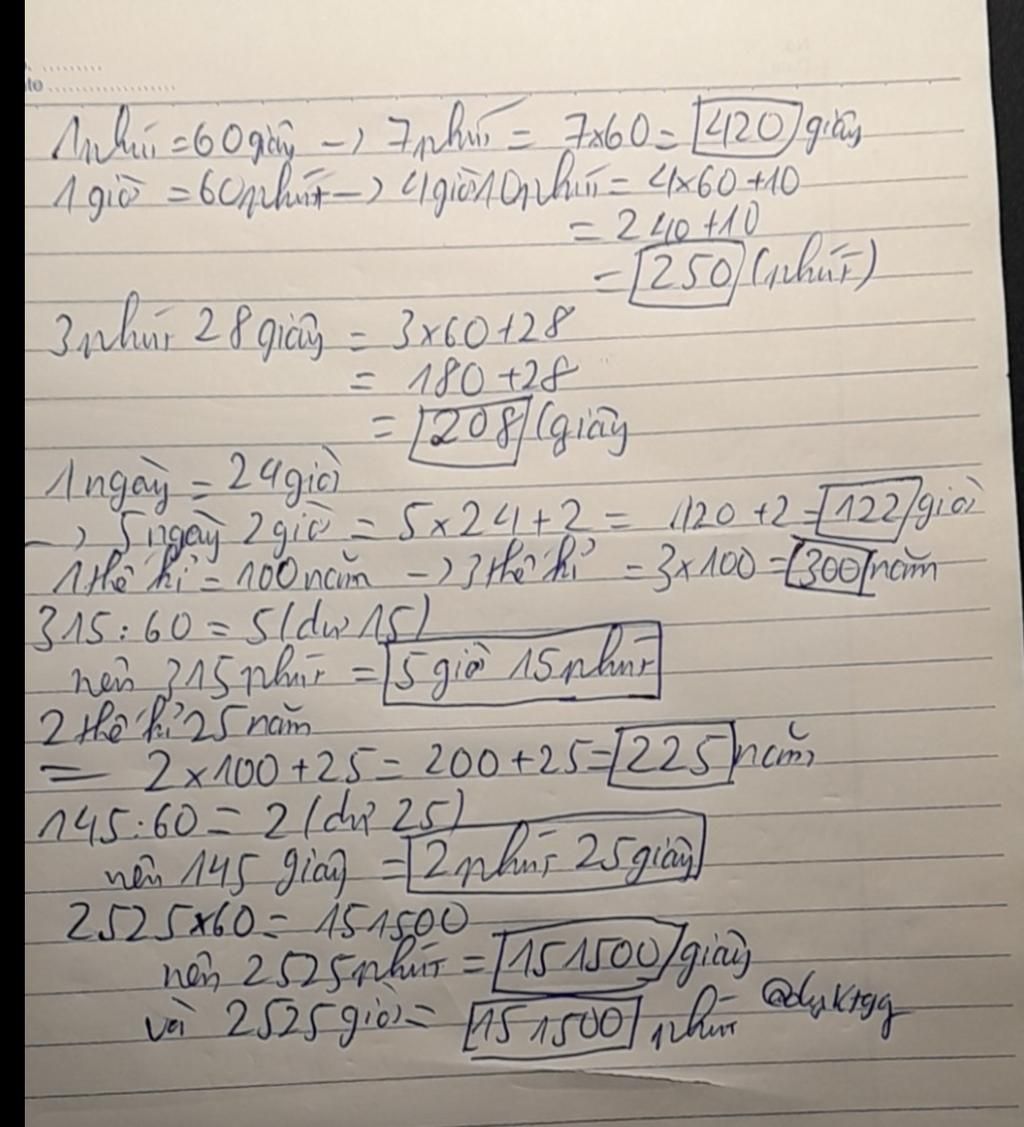 1 phút = 60 giây → 7 phút = 7x60 = 420 giây
1 giờ = 60 phút → 4 giờ 10 phút = 4x60+10
= 240+10
= 250 (phút)
3 phút 28 giây = 3x60+28
= 180+28
= 208 (giây
1 ngày = 24 giờ
→ 5 ngày 2 giờ = 5x24+2 = 120+2 = 122 giờ
1 thế kỉ = 100 năm → 3 thế kỉ = 3x100 = 300 năm
315:60 = 5 (dư 15)
nên 315 phút = 5 giờ 15 phút
2 thế kỉ 25 năm
= 2x100+25 = 200+25 = 225 năm
145:60 = 2 (dư 25)
nên 145 giây = 2 phút 25 giây
2525x60 = 151500
nên 2525 phút = 151500 giây
và 2525 giờ = 151500 phút